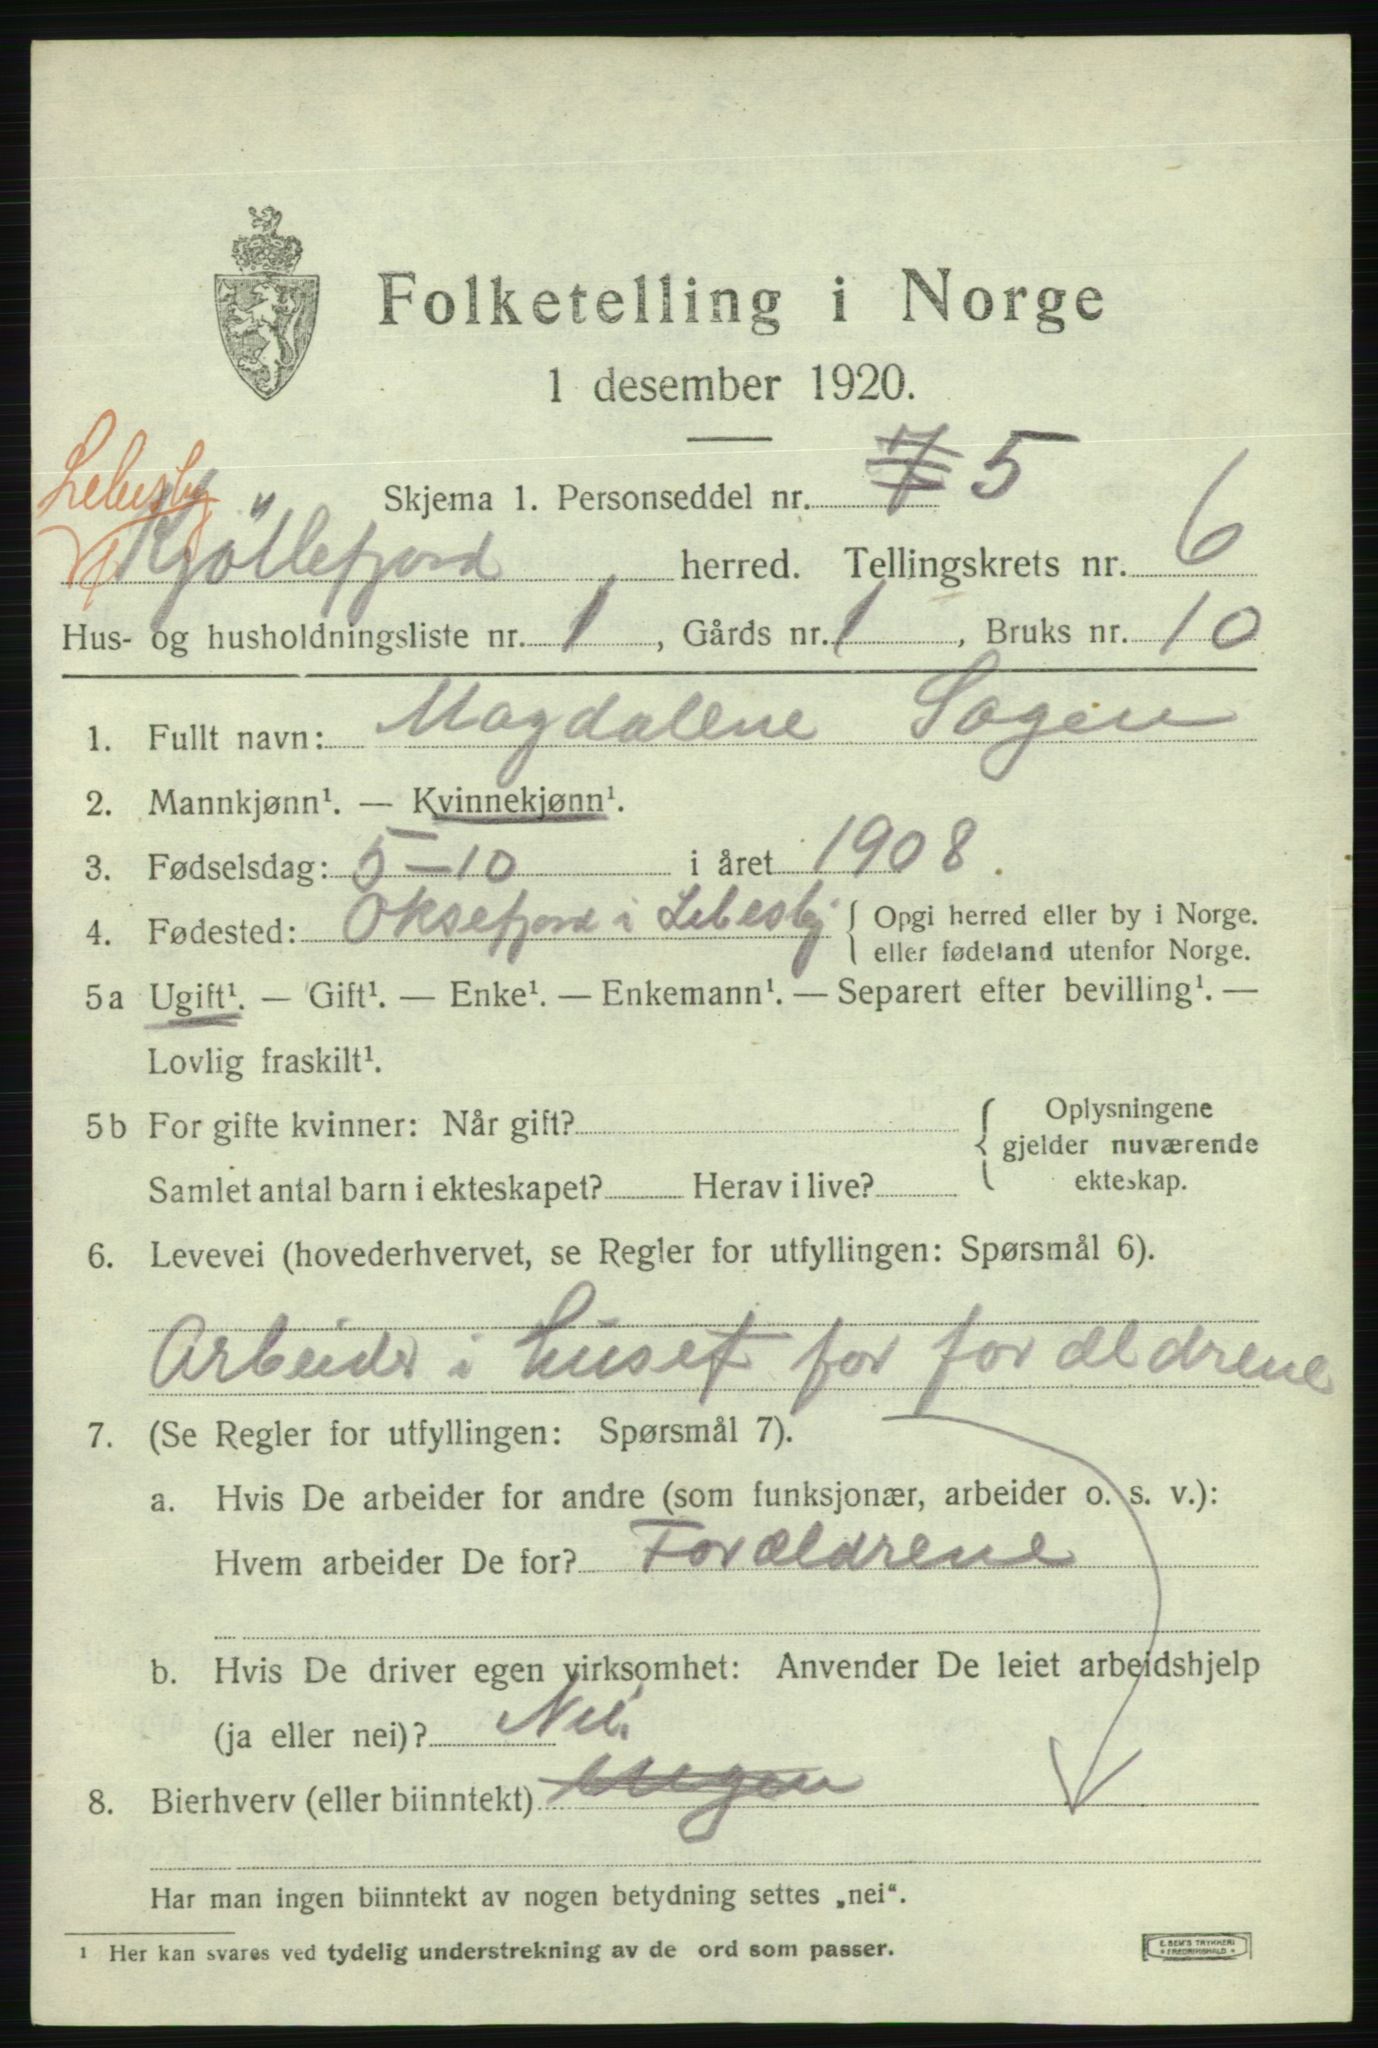 Folketelling i Norge
1 desember 1920.
Skjema 1. Personseddel nr. 7 5
Lebesby
Kjöllefjord herred. Tellingskrets nr. 6
Hus- og husholdningsliste nr. 1, Gårds nr. 1, Bruks nr. 10
1. Fullt navn: Magdalene Sagen
2. Mannkjønn¹. — Kvinnekjønn¹.
3. Fødselsdag: 5-10 i året 1908.
4. Fødested: Oksefjord i Lebesby { Opgi herred eller by i Norge.
eller fødeland utenfor Norge.
5a Ugift¹. — Gift¹. — Enke¹. — Enkemann¹. — Separert efter bevilling¹. —
Lovlig fraskilt¹.
5b For gifte kvinner: Når gift? { Oplysningene
gjelder nuværende
Samlet antal barn i ekteskapet? Herav i live? ekteskap.
6. Levevei (hovederhvervet, se Regler for utfyllingen: Spørsmål 6).
Arbeider i huset for forældrene
7. (Se Regler for utfyllingen: Spørsmål 7).
a. Hvis De arbeider for andre (som funksjonær, arbeider o. s. v.):
Hvem arbeider De for? Forældrene
b. Hvis De driver egen virksomhet: Anvender De leiet arbeidshjelp
(ja eller nei)? Nei
8. Bierhverv (eller biinntekt) ingen
Har man ingen biinntekt av nogen betydning settes „nei“.
1 Her kan svares ved tydelig understrekning av de ord som passer.
E. SEM'S TRYKKERI
FREDRIKSHALD